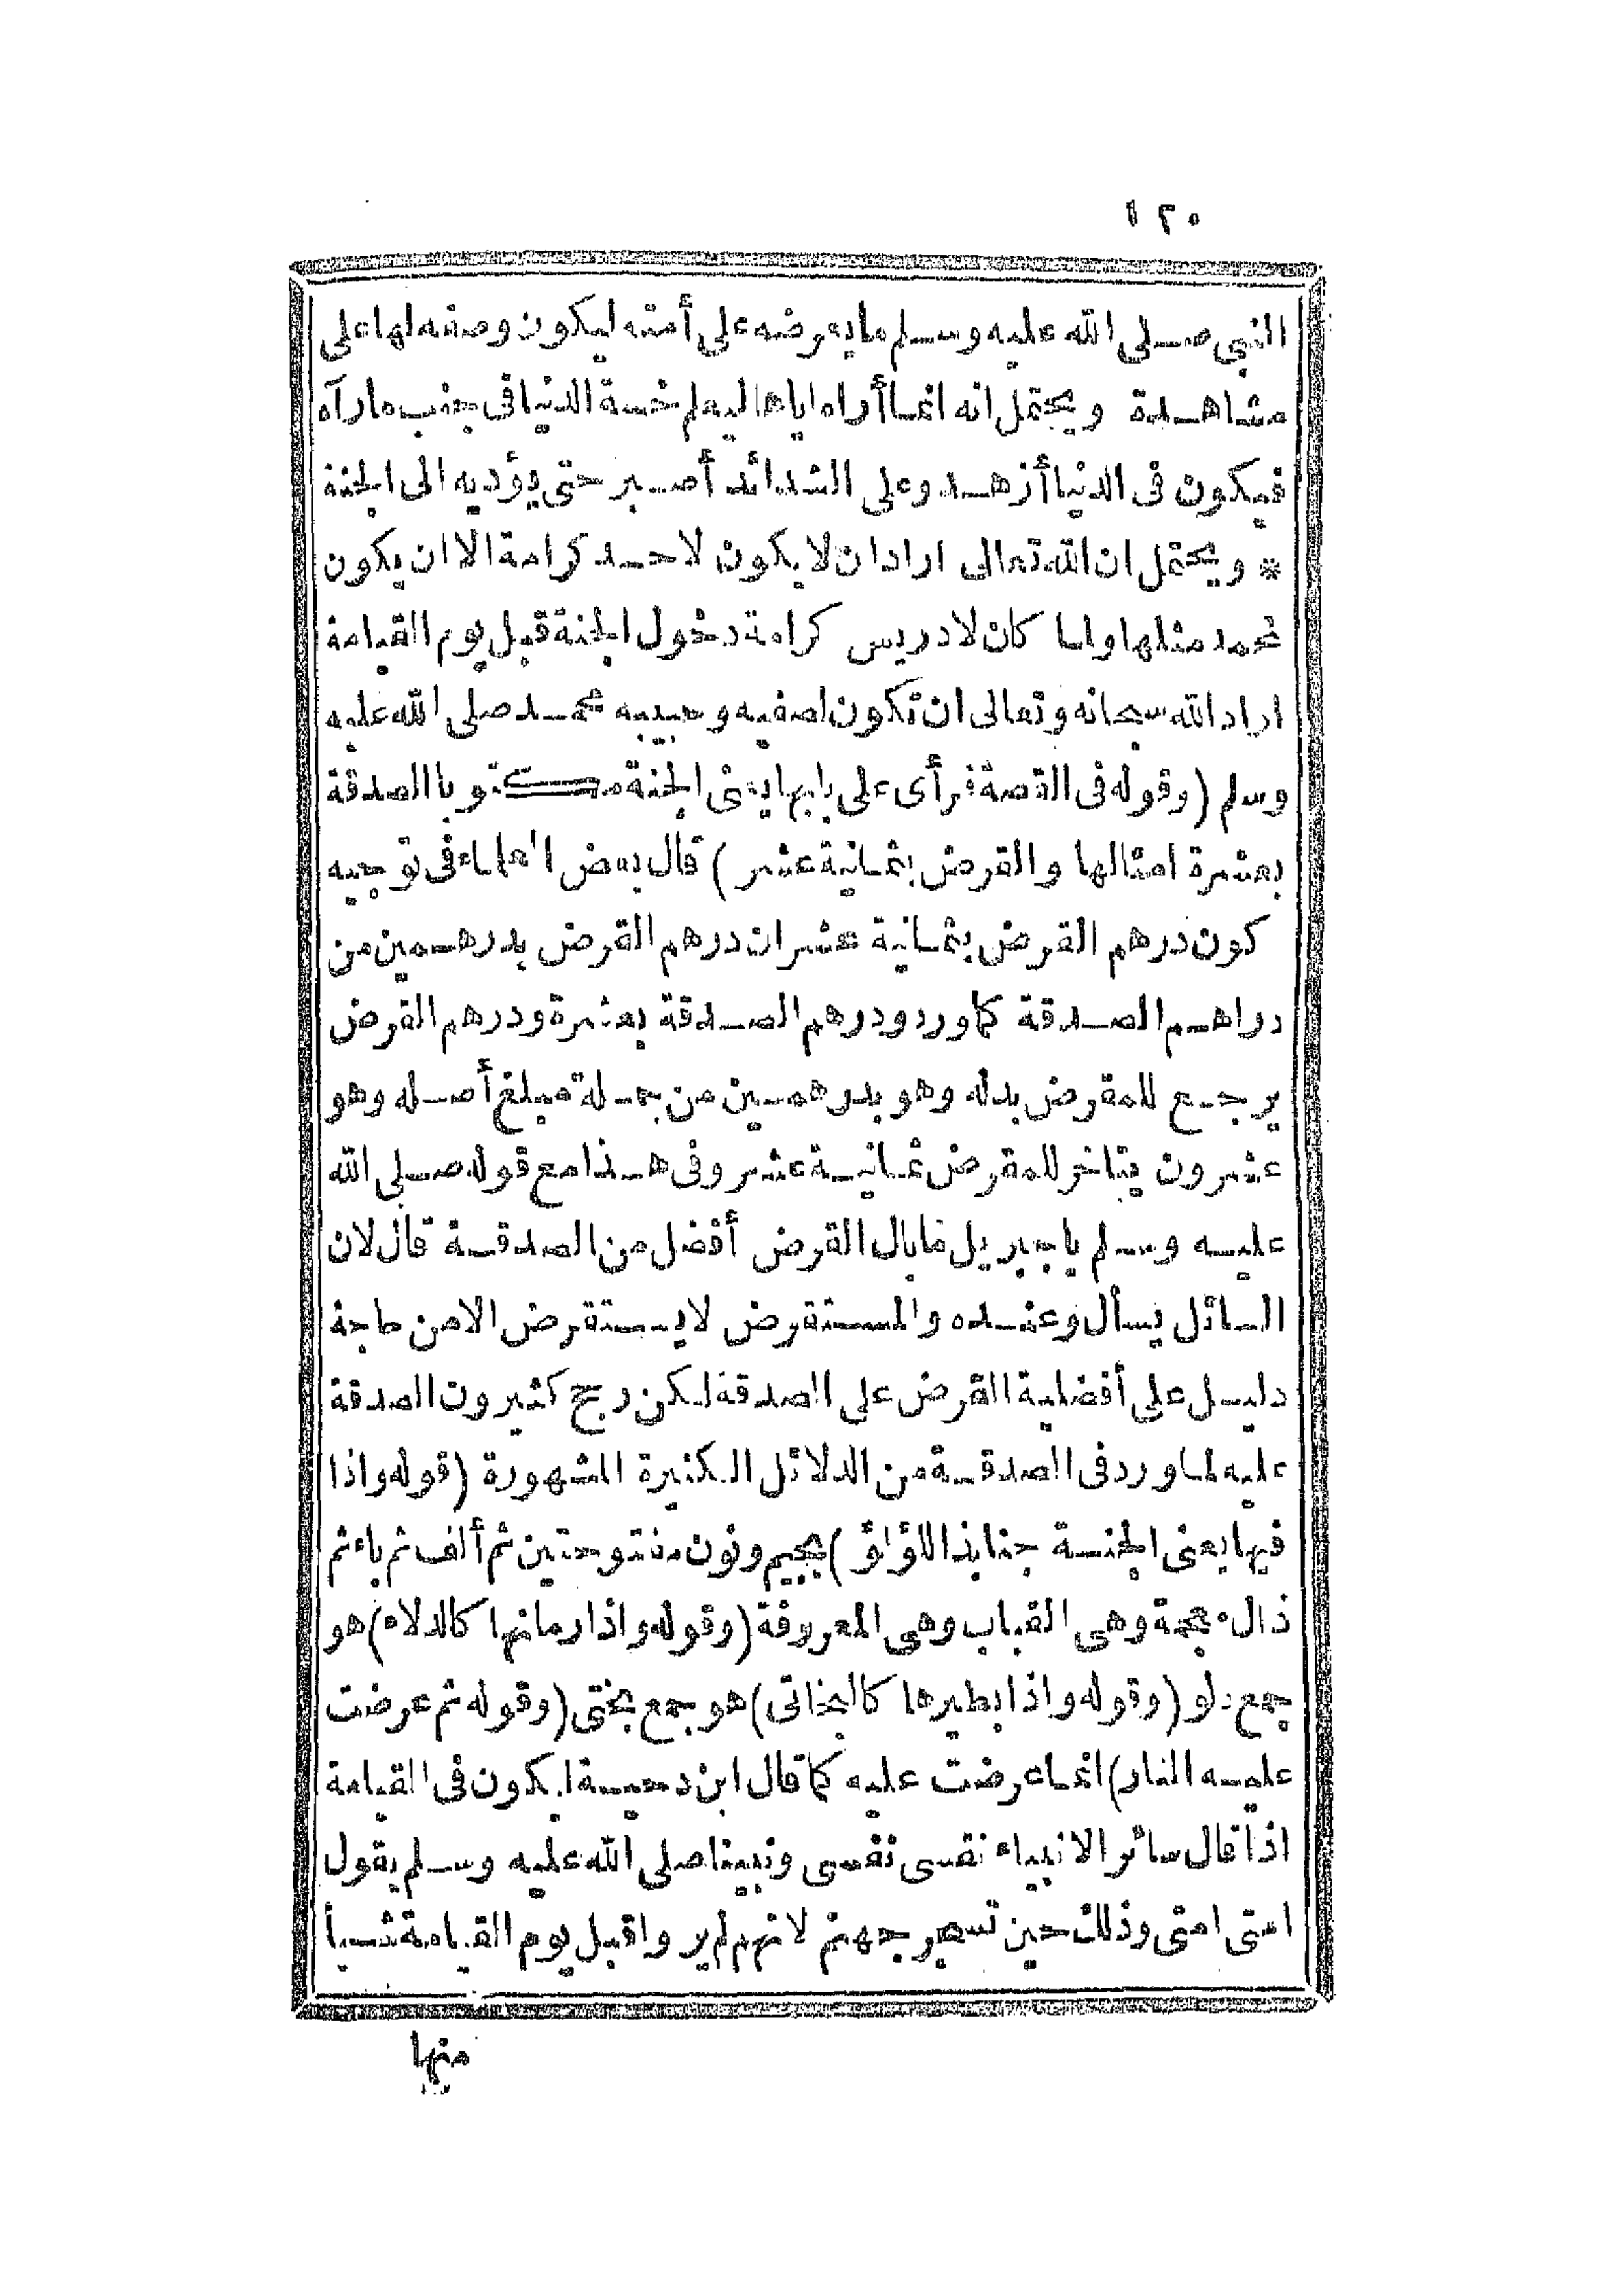 ١٢٠
النبي صلى الله عليه وسلم ما يعرضه على أمته ليكون وصفه لها على
مشاهدة ويحتمل انه انما أراه اياها ليعلم خسة الدنيا فى جنب ما رآه
فيكون فى الدنيا أزهد وعلى الشدائد أصبر حتى يؤديه الى الجنة
* ويحتمل ان الله تعالى اراد ان لا يكون لاحد كرامة الا ان يكون
لمحمد مثلها ولما كان لادريس كرامة دخول الجنة قبل يوم القيامة
اراد الله سبحانه وتعالى ان تكون لصفيه وحبيبه محمد صلى الله عليه
وسلم (وقوله فى القصة فرأى على بابها يعنى الجنة مكتوبا الصدقة
بعشرة امثالها والقرض بثمانية عشر) قال بعض العلماء فى توجيه
كون درهم القرض بثمانية عشر ان درهم القرض بدرهمين من
دراهم الصدقة كما ورد ودرهم الصدقة بعشرة ودرهم القرض
يرجع للمقرض بدله وهو بدرهمين من جملة مبلغ أصله وهو
عشرون يتاخر للمقرض ثمانية عشر وفى هذا مع قوله صلى الله
عليه وسلم ياجبريل مابال القرض أفضل من الصدقة قال لان
السائل يسأل وعنده والمستقرض لا يستقرض الا من حاجة
دليل على أفضلية القرض على الصدقة لكن رجح كثيرون الصدقة
عليه لما ورد فى الصدقة من الدلائل الكثيرة المشهورة (قوله واذا
فيها يعنى الجنة جنابذ اللؤلؤ) بجيم ونون مفتوحتين ثم ألف ثم باء ثم
ذال معجمة وهى القباب وهى المعروفة (وقوله واذا رمانها كالدلاء) هو
جمع دلو (وقوله واذا بطيرها كالبخاتى) هو جمع بختى (وقوله ثم عرضت
عليه النار) انما عرضت عليه كما قال ابن دحية ليكون فى القيامة
اذا قال سائر الانبياء نفسى نفسى ونبينا صلى الله عليه وسلم يقول
امتى امتى وذلك حين تسجر جهنم لانهم لم يروا قبل يوم القيامة شيأ
منها